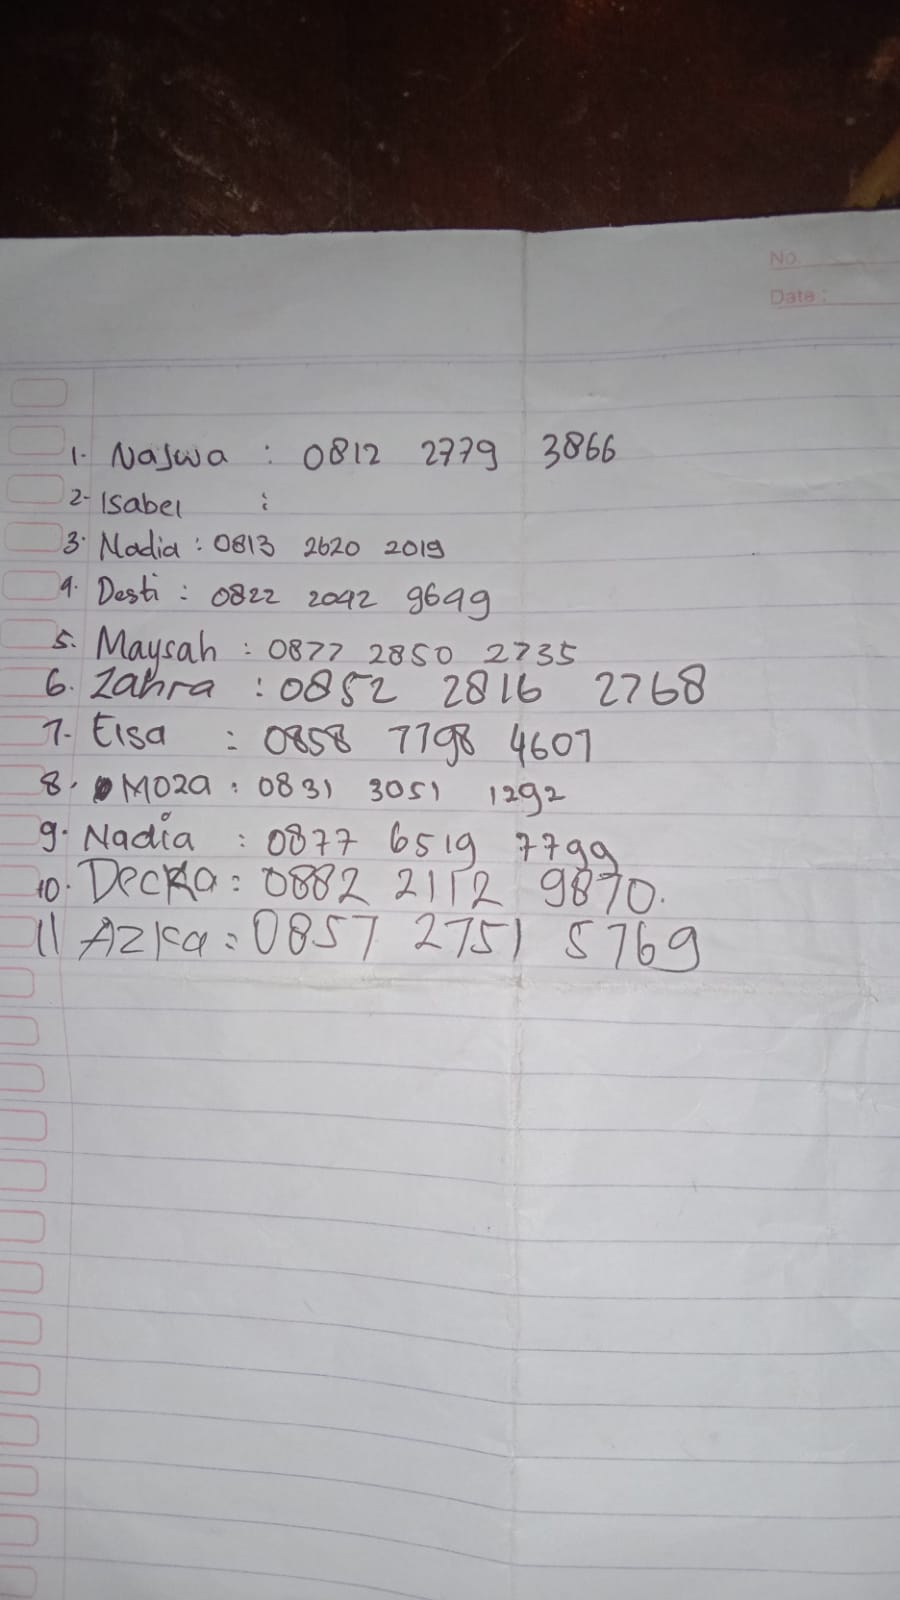 No.
Date :
1. Najwa : 0812 2779 3866
2- Isabel :
3. Nadia : 0813 2620 2019
4. Desti : 0822 2042 9649
5. Maysah : 0877 2850 2735
6. Zahra : 0852 2816 2768
7. Elsa : 0858 7798 4607
8. Moza : 0831 3051 1292
9. Nadia : 0877 6519 7799
10. Decka : 0882 2112 9870.
11 Azka : 0857 2751 5769